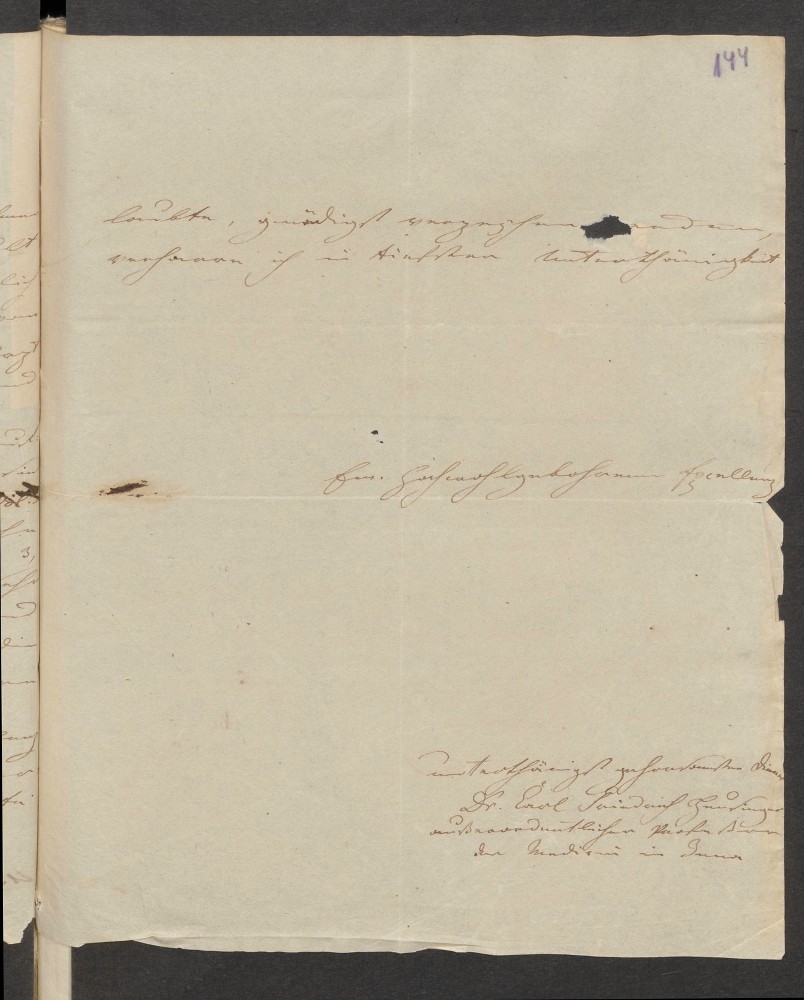 144
laubte, gnädigst verzeihen werden,
verharre ich in tiefster Unterthänigkeit
Ew. Hochwohlgebohrnen Excellenz
unterthänigst gehorsamster Diener
Dr. Carl Friedrich Heusinger
außerordentlicher Professor
der Medicin in Jena